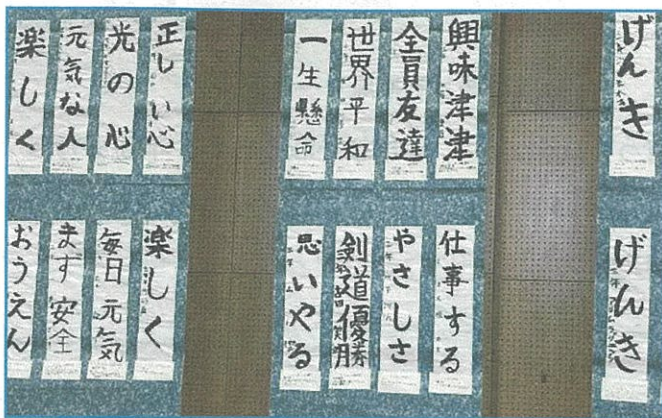 げんき
興味津津
全員友達
世界平和
一生懸命
正しい心
光の心
元気な人
楽しく
げんき
仕事する
やさしさ
剣道優勝
思いやる
楽しく
毎日元気
まず安全
おうえん